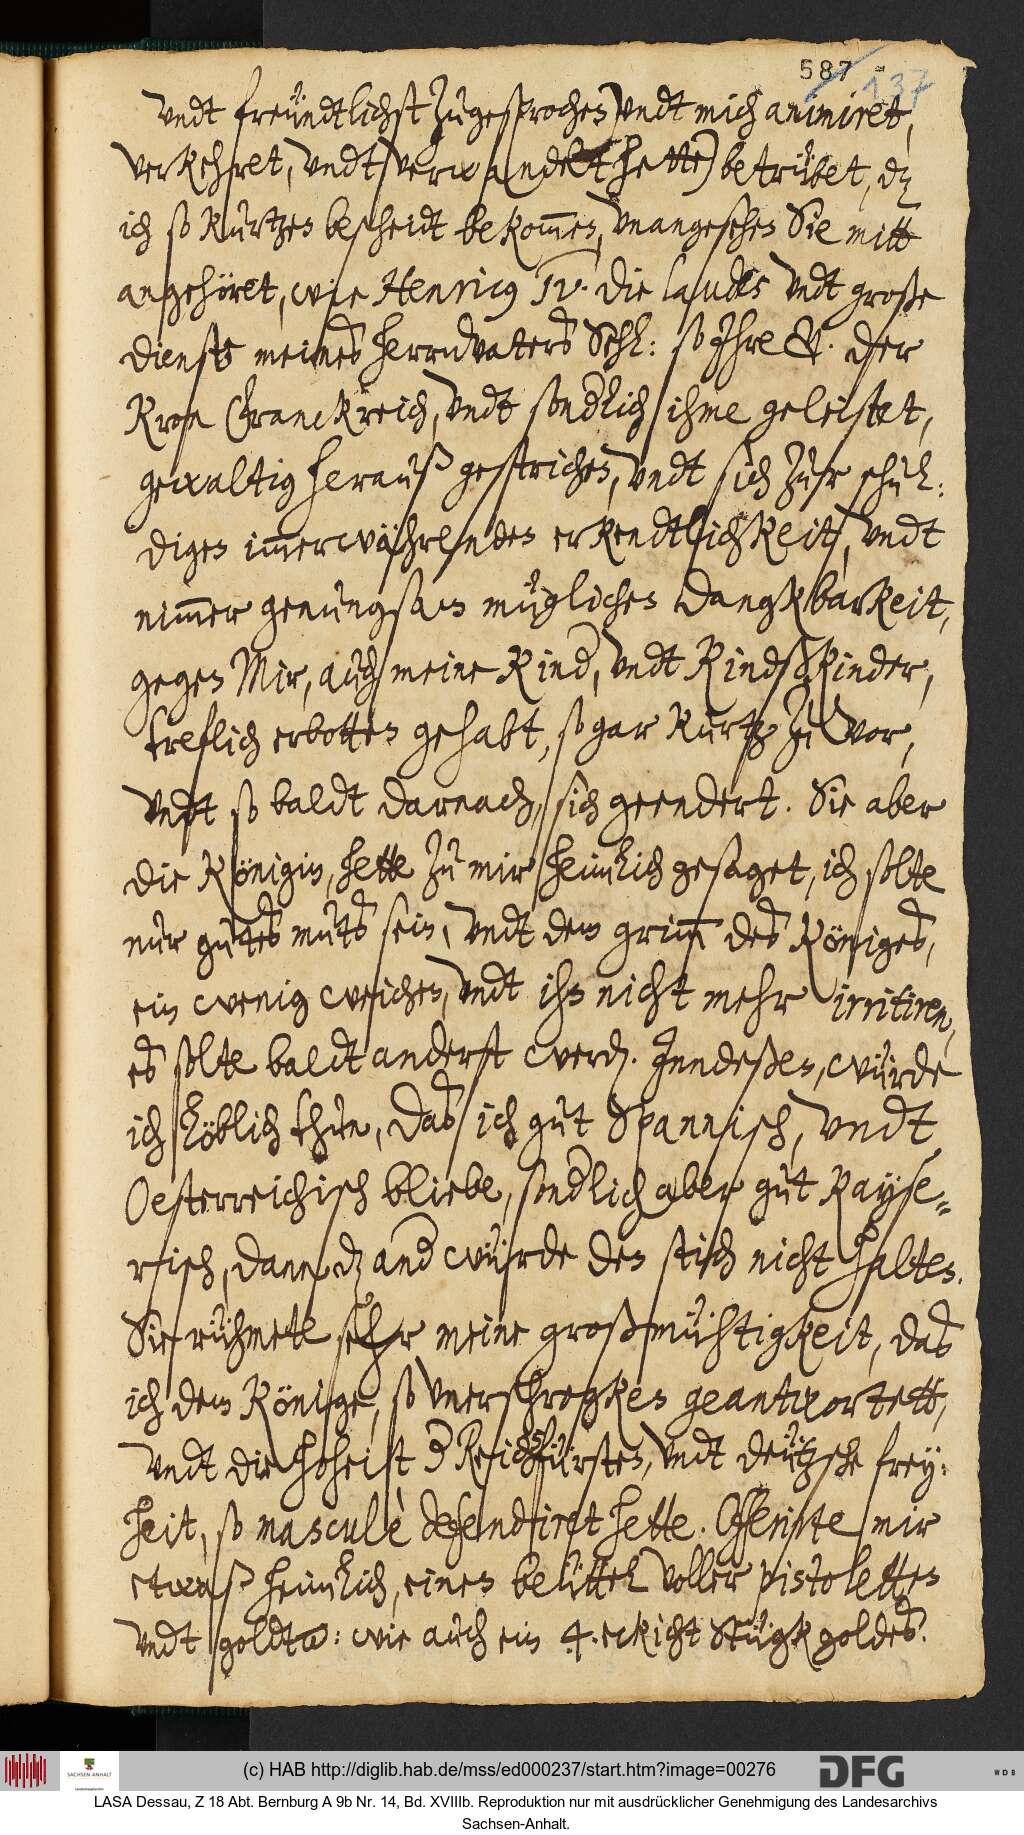 587
137
undt freündtlichst zugesprochen, undt mich animiret,
verkehret, undt verwandelt hette) betrübet, dz
ich so kurtzen bescheidt bekom̅en, unangesehen Sie mitt
angehöret, wie Henricus IV. die laudes undt große
dienste meines herrnvaters Sehl: so Ihre G. der
Kron Franckreich, undt sondlich ihme geleistet,
gewaltig herauß gestrichen, undt sich zur schul:
digen im̅erwährenden erkendtlichkeit, undt
nim̅er genungsam müglichen dangkbarkeit,
gegen Mir, auch meine Kind, undt Kindskinder,
treflich erbotten gehabt, so gar kurtz zu vor,
undt so baldt darnach, sich geendert. Sie aber
die Königin, hette zu mir heimlich gesaget, ich solte
nur gutes muts sein, undt dem grim̅ des Königes,
ein wenig weichen, undt ihn nicht mehr irritiren,
es solte baldt anderst werd. Inndeßen, würde
ich löblich thun, das ich gut Spannisch, undt
Oesterreichisch bliebe, sondlich aber gut Kayse-
risch, dann dz and würde den stich nicht halten.
Sie rühmete sehr meine großmühtigkeit, das
ich dem Könige, so unerschrogken geantwortett,
undt die hoheit d Reichsfürsten, undt deützsche frey:
heit, so masculè defendiret hette. Offerirte mir
etwaß heimlich, einen beüttel voller pistoletten
undt goldt: wie auch ein 4.eckicht Stügk goldes.
(c) HAB http://diglib.hab.de/mss/ed000237/start.htm?image=00276
SACHSEN-ANHALT
DFG
WDB
LASA Dessau, Z 18 Abt. Bernburg A 9b Nr. 14, Bd. XVIIIb. Reproduktion nur mit ausdrücklicher Genehmigung des Landesarchivs
Sachsen-Anhalt.